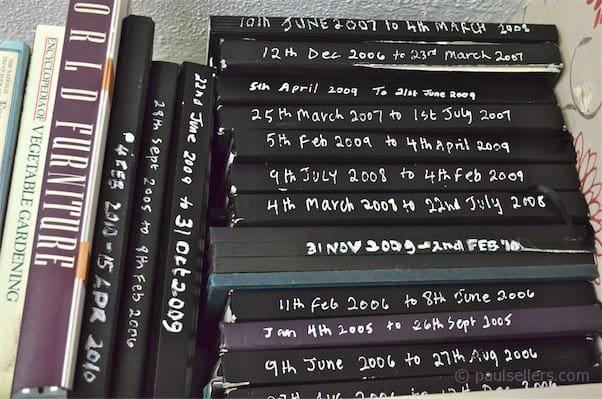 ENCYCLOPEDIA OF
VEGETABLE GARDENING
ORLD FURNITURE
4 FEB 2010 - 15 APR 2010
28th Sept 2005 to 9th Feb 2006
22nd June 2009 to 31 Oct 2009
10th JUNE 2007 to 4th MARCH 2008
12th Dec 2006 to 23rd March 2007
5th April 2009 To 21st June 2009
25th March 2007 to 1st July 2007
5th Feb 2009 to 4th April 2009
9th July 2008 to 4th Feb 2009
4th March 2008 to 22nd July 2008
31 NOV 2009 - 2nd FEB '10
11th Feb 2006 to 8th June 2006
Jan 4th 2005 to 26th Sept 2005
9th June 2006 to 27th Aug 2006
27th Aug 2006 to 12th Dec 2006
© paulsellers.com